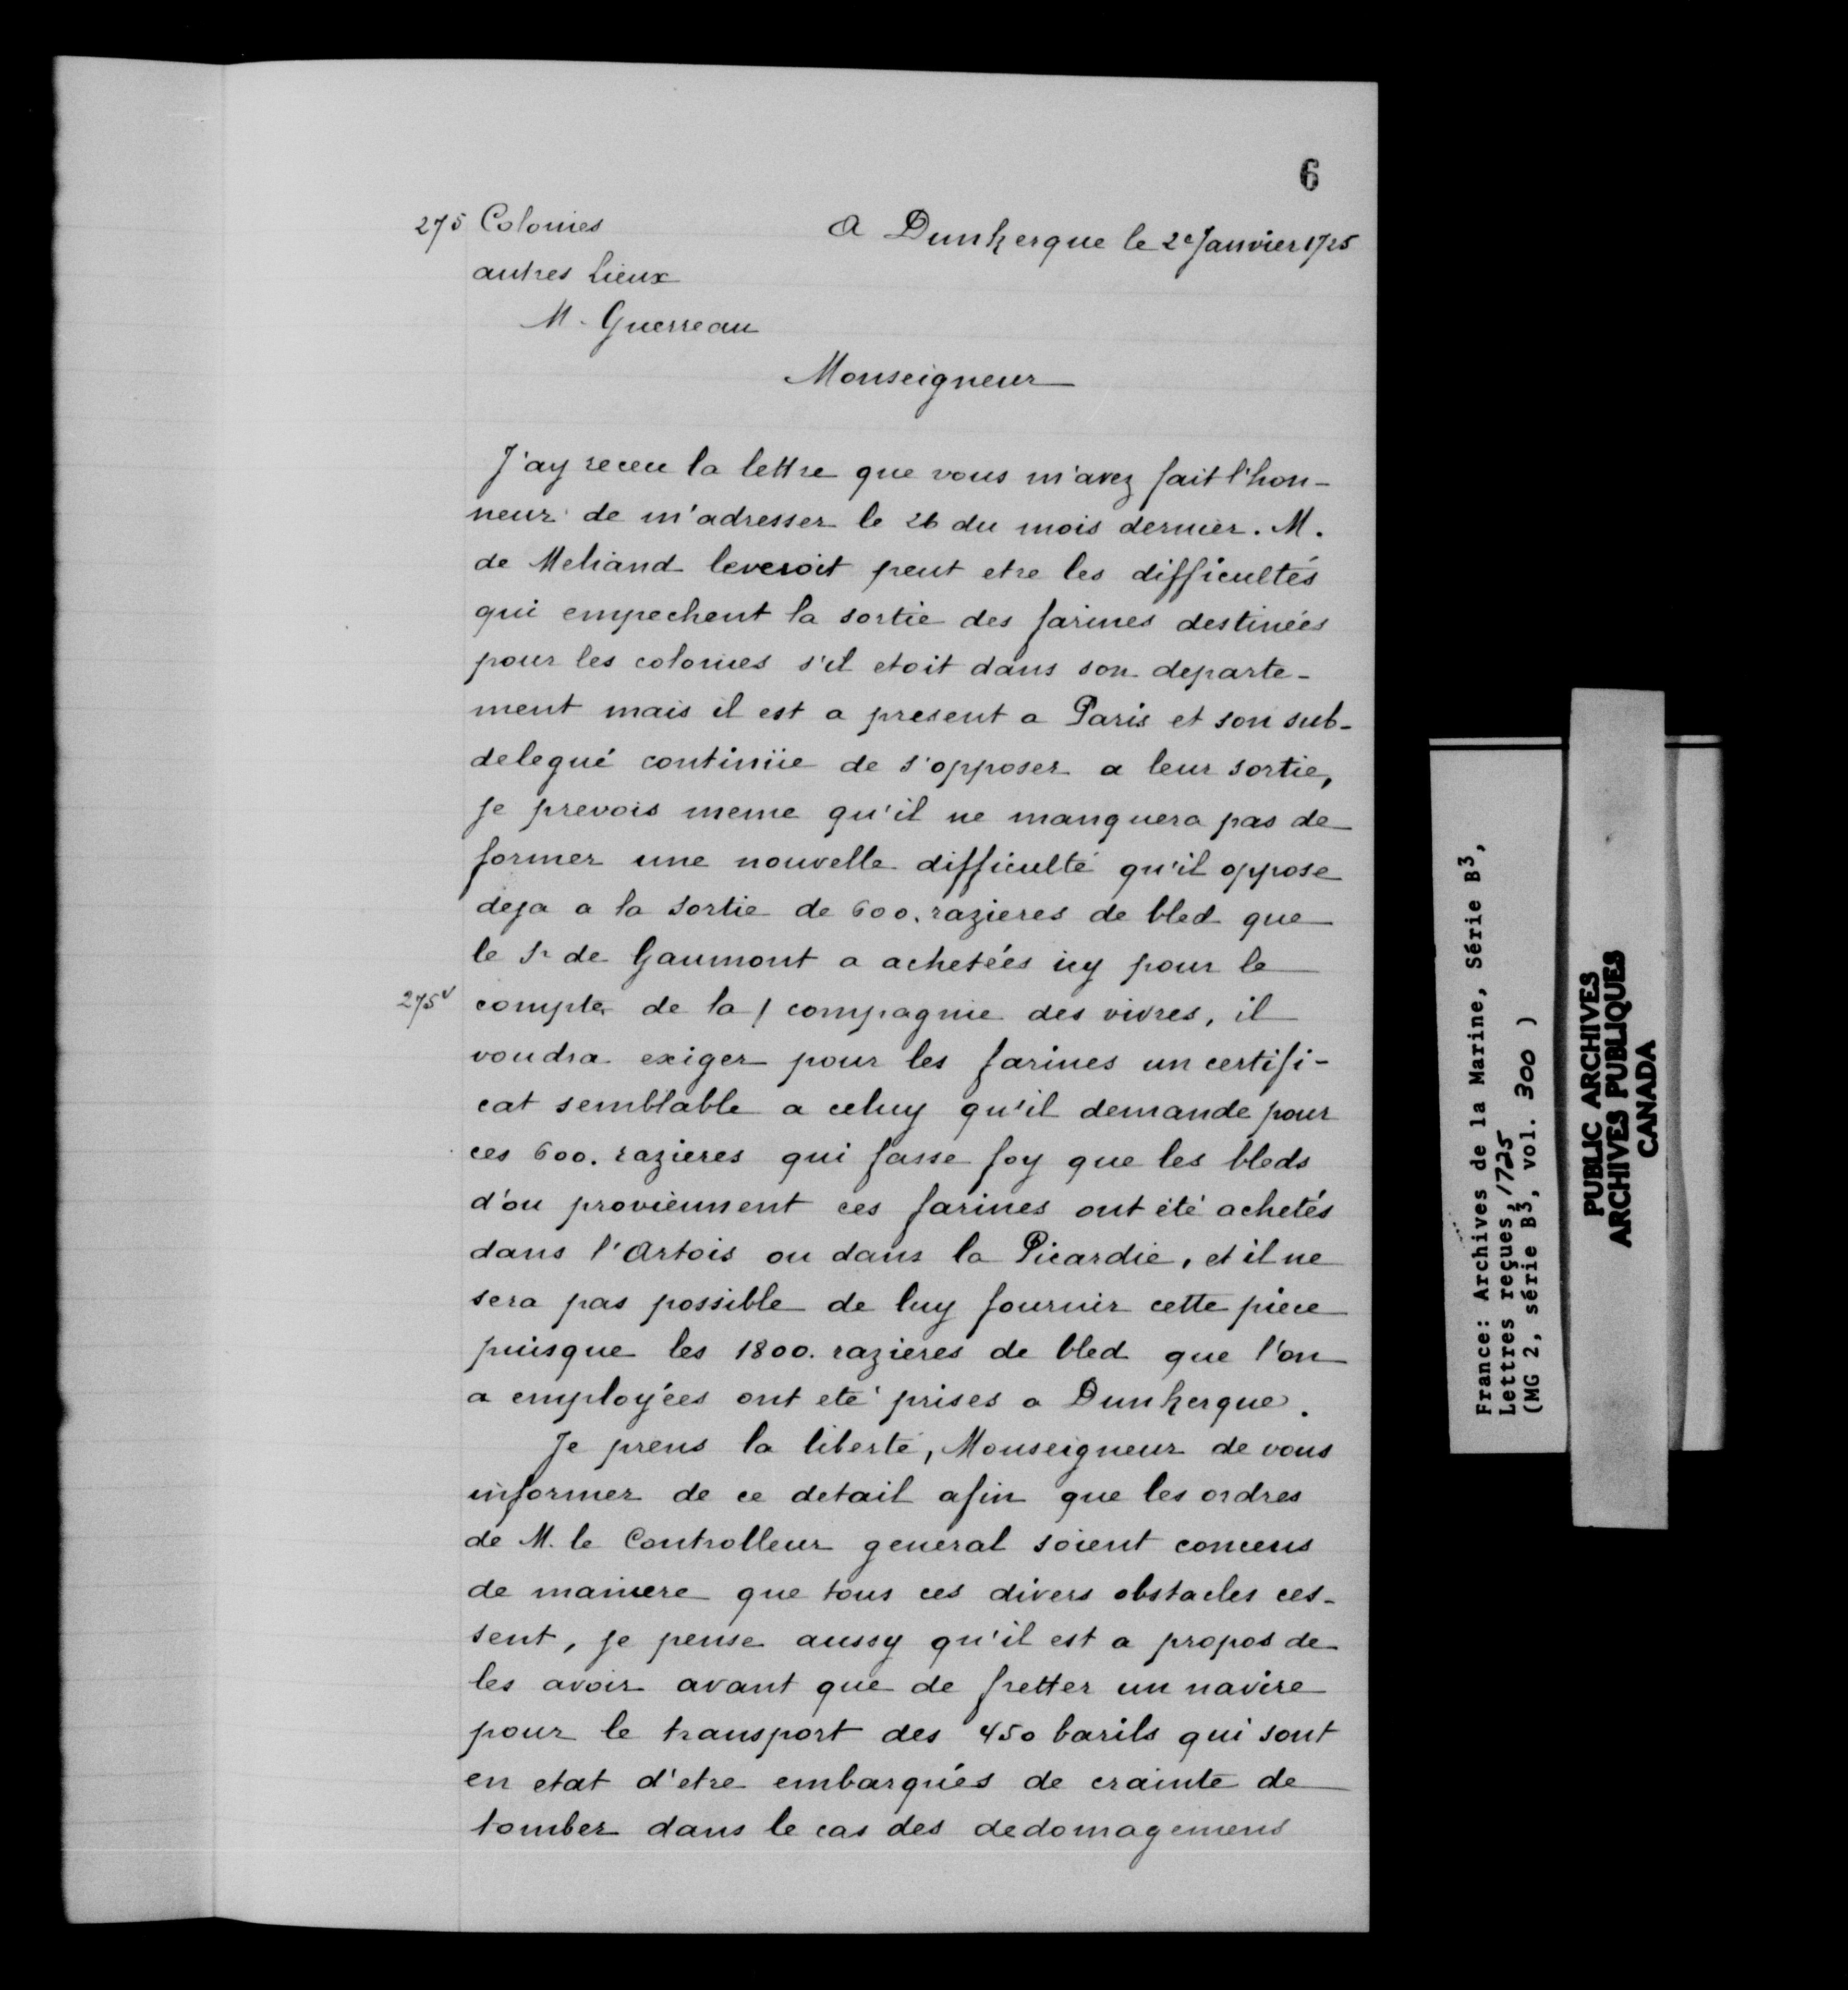 6
275 Colonies
A Dunkerque le 2e Janvier 1725
autres Lieux
M. Guerreau
Monseigneur
J'ay receu la lettre que vous m'avez fait l'hon-
neur de m'adresser le 26 du mois dernier. M.
de Meliand leveroit peut etre les difficultés
qui empechent la sortie des farines destinées
pour les colonies s'il etoit dans son departe-
ment mais il est a present a Paris et son sub-
delegué continüe de s'opposer a leur sortie,
je prevois meme qu'il ne manquera pas de
former une nouvelle difficulté qu'il oppose
deja a la sortie de 600. razieres de bled que
le Sr de Gaumont a achetées icy pour le
275v compte de la / compagnie des vivres, il
voudra exiger pour les farines un certifi-
cat semblable a celuy qu'il demande pour
ces 600. razieres qui fasse foy que les bleds
d'ou proviennent ces farines ont été achetés
dans l'Artois ou dans la Picardie, et il ne
sera pas possible de luy fournir cette piece
puisque les 1800. razieres de bled que l'on
a employées ont eté prises a Dunkerque.
Je prens la liberté, Monseigneur de vous
informer de ce detail afin que les ordres
de M. le Controlleur general soient conceus
de maniere que tous ces divers obstacles ces-
sent, je pense aussy qu'il est a propos de
les avoir avant que de fretter un navire
pour le transport des 450 barils qui sont
en etat d'etre embarqués de crainte de
tomber dans le cas des dedomagemens
France: Archives de la Marine, Série B3,
Lettres reçues, 1725
(MG 2, série B3, vol. 300 )
PUBLIC ARCHIVES
ARCHIVES PUBLIQUES
CANADA